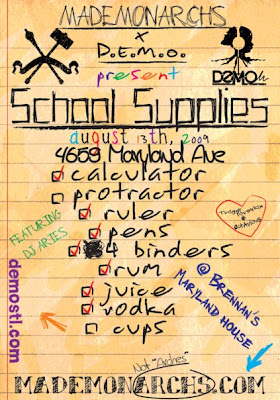 MADEMONARCHS
x
D.E.M.O.
present
DEMO
School Supplies
august 13th, 2009
4659 Maryland Ave
calculator
protractor
ruler
pens
4 binders
rum
juice
vodka
cups
FEATURING
DJ ARIES
demostl.com
@ BRENNAN'S
MARYLAND HOUSE
Not "Arches"
MADEMONARCHS.COM